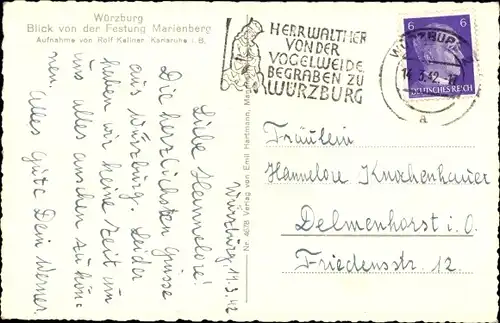 Würzburg
Blick von der Festung Marienberg
Aufnahme von Rolf Kellner, Karlsruhe i. B.
HERR WALTHER
VON DER
VOGELWEIDE
BEGRABEN ZU
WÜRZBURG
WÜRZBURG
14.3.42
a
6
6
DEUTSCHES REICH
Würzburg, 14.3.42
Liebe Hannelore!
Die herzlichsten Grüsse
aus Würzburg. Leider
haben wir keine Zeit um
uns alles ansehen zu kön-
nen.
Alles Gute Dein Werner
Nr. 4678 Verlag von Emil Hartmann,
Fräulein
Hannelore Knochenhauer
Delmenhorst i. O.
Friedensstr. 12.